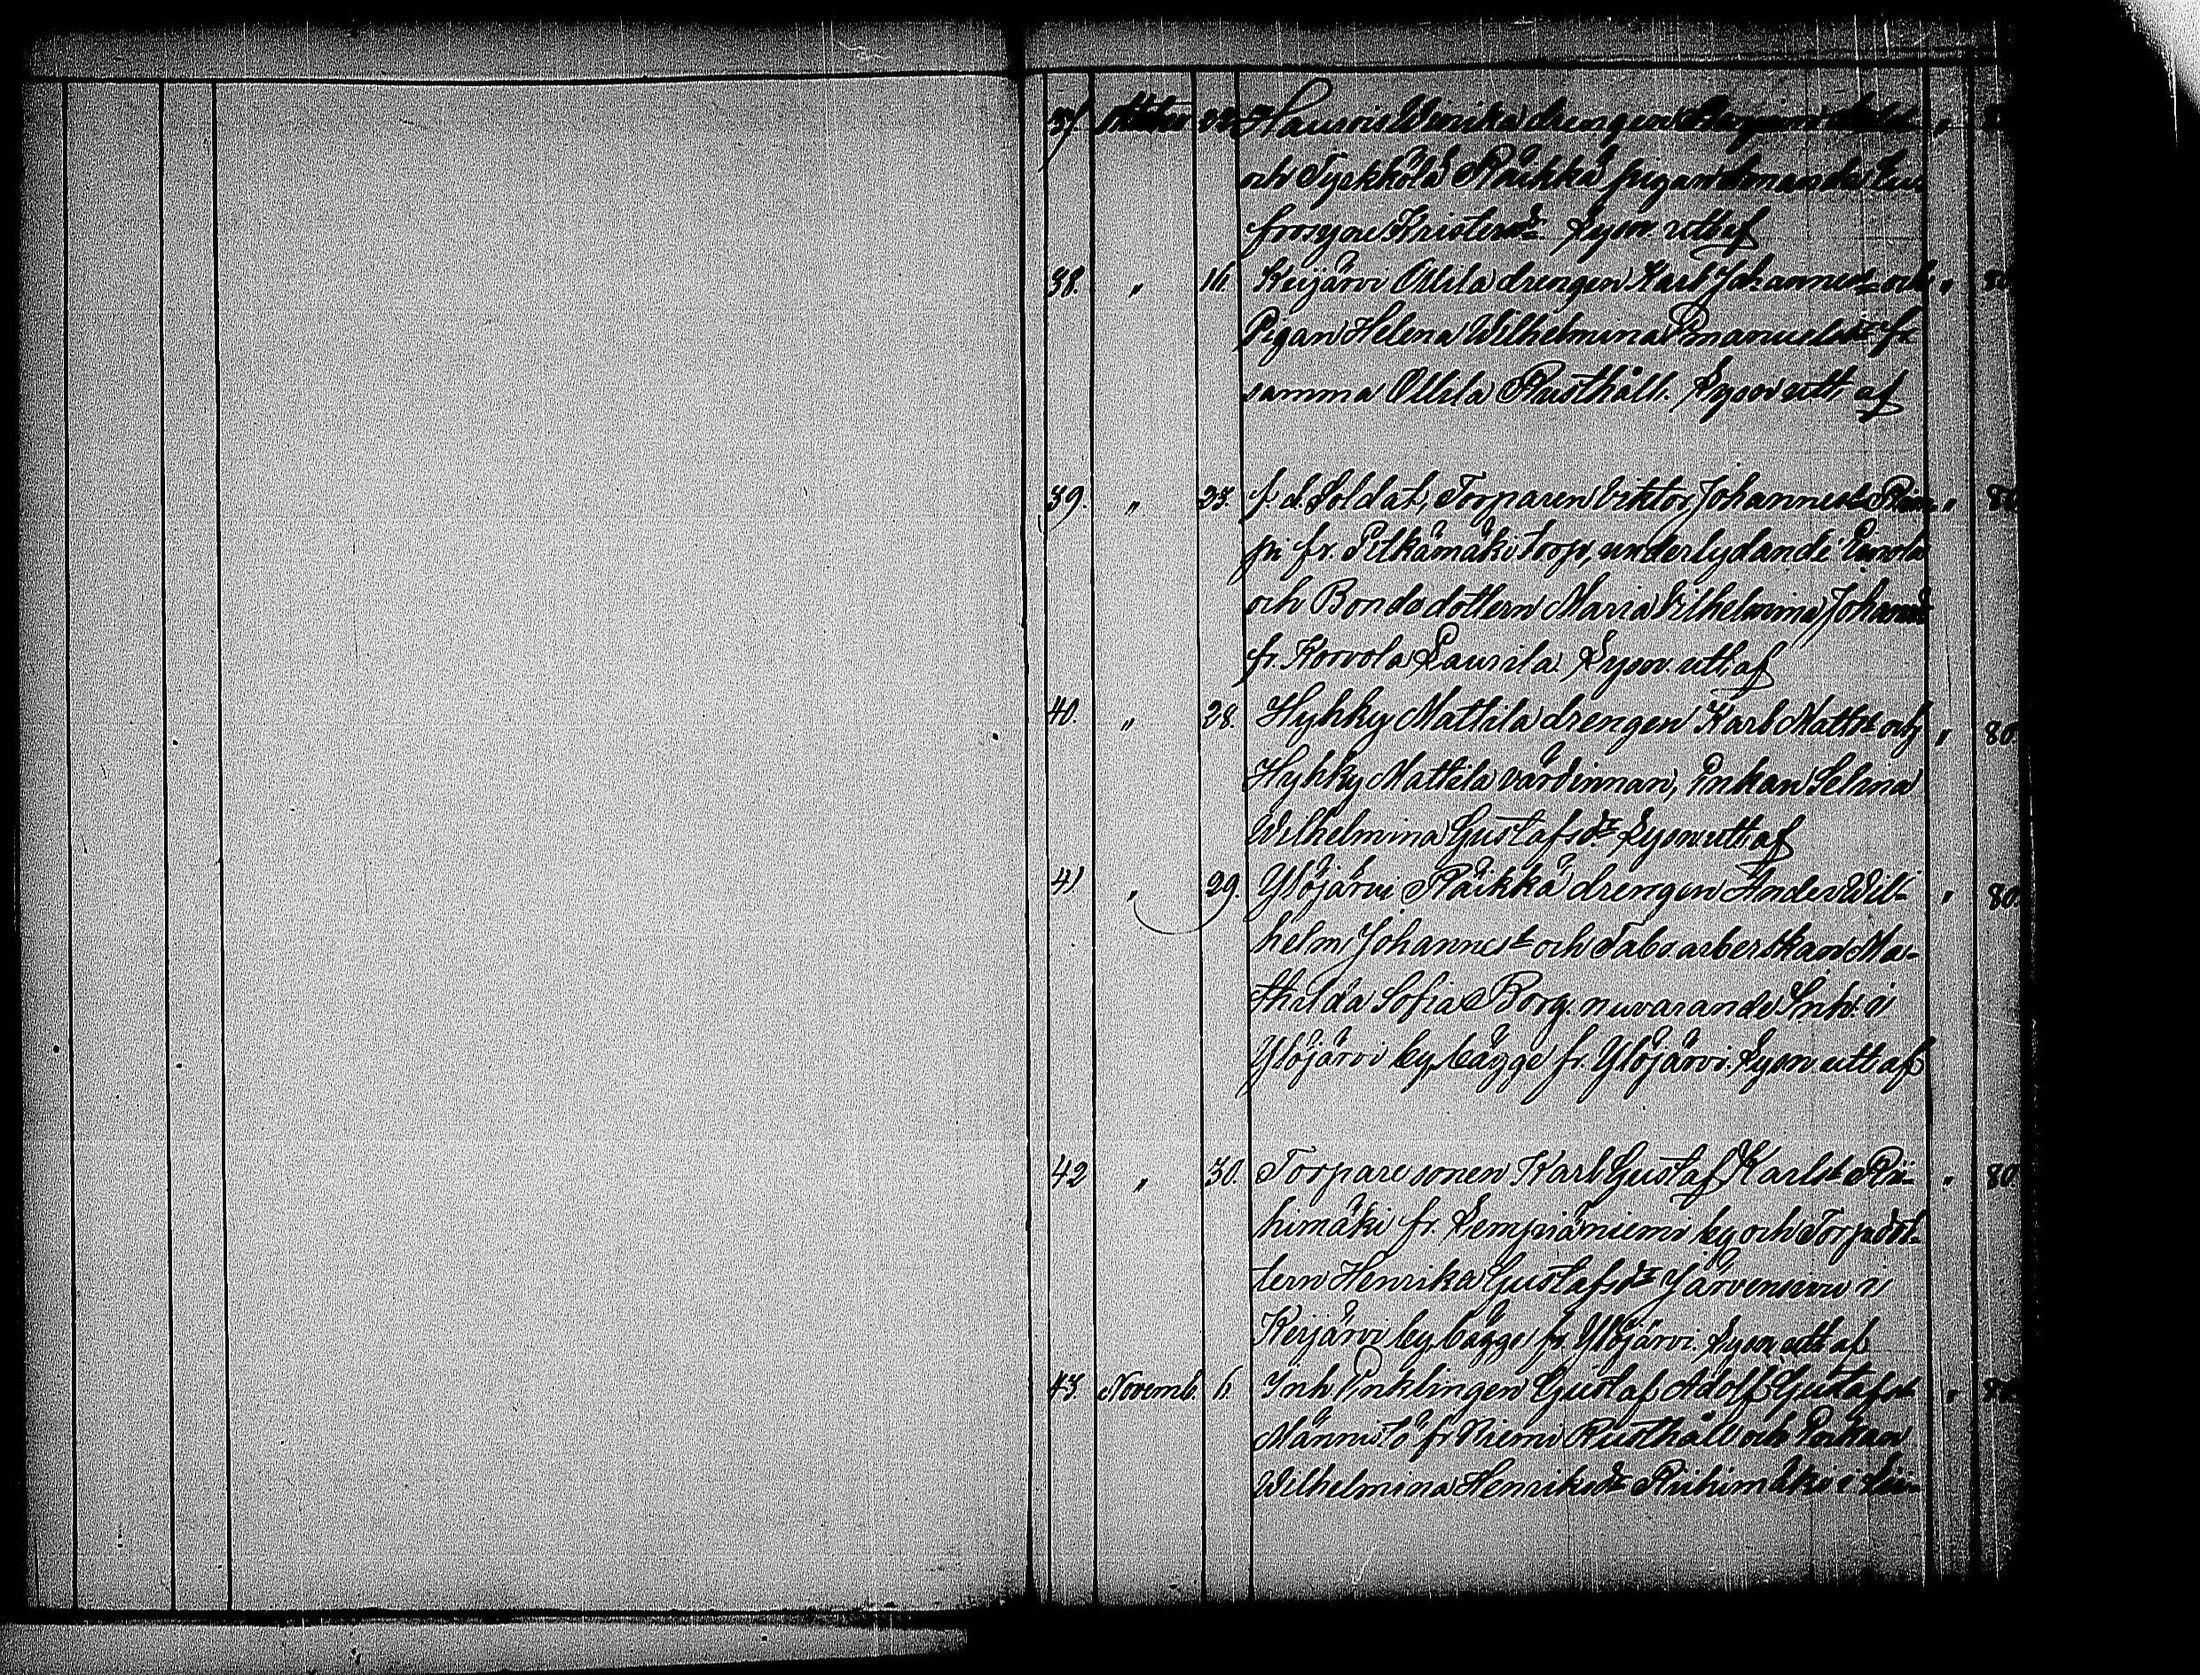 37. Oktober 22. Haurois Winika drengen
och Tyrkkölä Räikkä pigan Amanda Eu-
frosyne Kristersdr. Lysn. utt af
38. " 16. Keijärvi Ollila drengen Karl Johannes och " 80
Pigan Helena Wilhelmina Emanuelsdr fr.
samma Ollila Rusthåll. Lysn. utt af
39. " 23. f. d. Soldat, Torparen Viktor Johannes " 80
pi fr. Pitkämäki torp, underlydande
och Bondedottern Maria Vilhelmina Johansdr
fr. Korvola Laurila Lysn. utt af
40. " 28. Hyhky Mattila drengen Karl Matts och " 80.
Hyhky Mattila värdinnan, Enkan Selma
Wilhelmina Gustafsdr. Lysn. utt af
41 " 29. Ylöjärvi Räikkä drengen Anders Wil- " 80.
helm Johannes och Fabr. arberskan Ma-
thilda Sofia Borg. nuvarande Inh. i
Ylöjärvi by, bägge fr. Ylöjärvi. Lysn utt af
42 " 30. Torparesonen Karl Gustaf Karls Rii- " 80.
himäki fr. Lempiäniemi by och Torpdot-
tern Henrika Gustafsdr Järvensuu i
Keijärvi by, bägge fr. Ylöjärvi. Lysn. utt af
43. Novemb. 6. Inh. Enklingen Gustaf Adolf Gustafs " 80.
Männistö fr Niemi Rusthåll och Enkan
Wilhelmina Henriksdr Riihimäki i